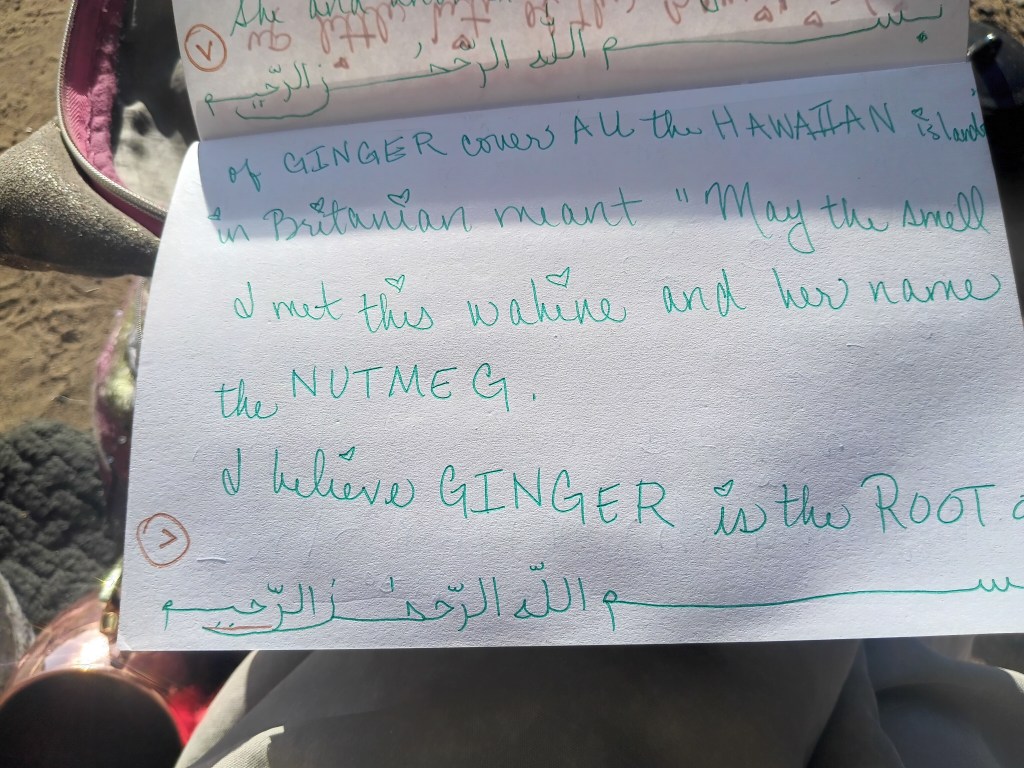 She and
٧
بســـم الله الرّحمٰـن الرّحيم
of GINGER cover ALL the HAWAIIAN islands
in Britanian meant "May the smell
I met this wahine and her name
the NUTMEG.
I believe GINGER is the ROOT
>
بســـم الله الرّحمٰـن الرّحيم